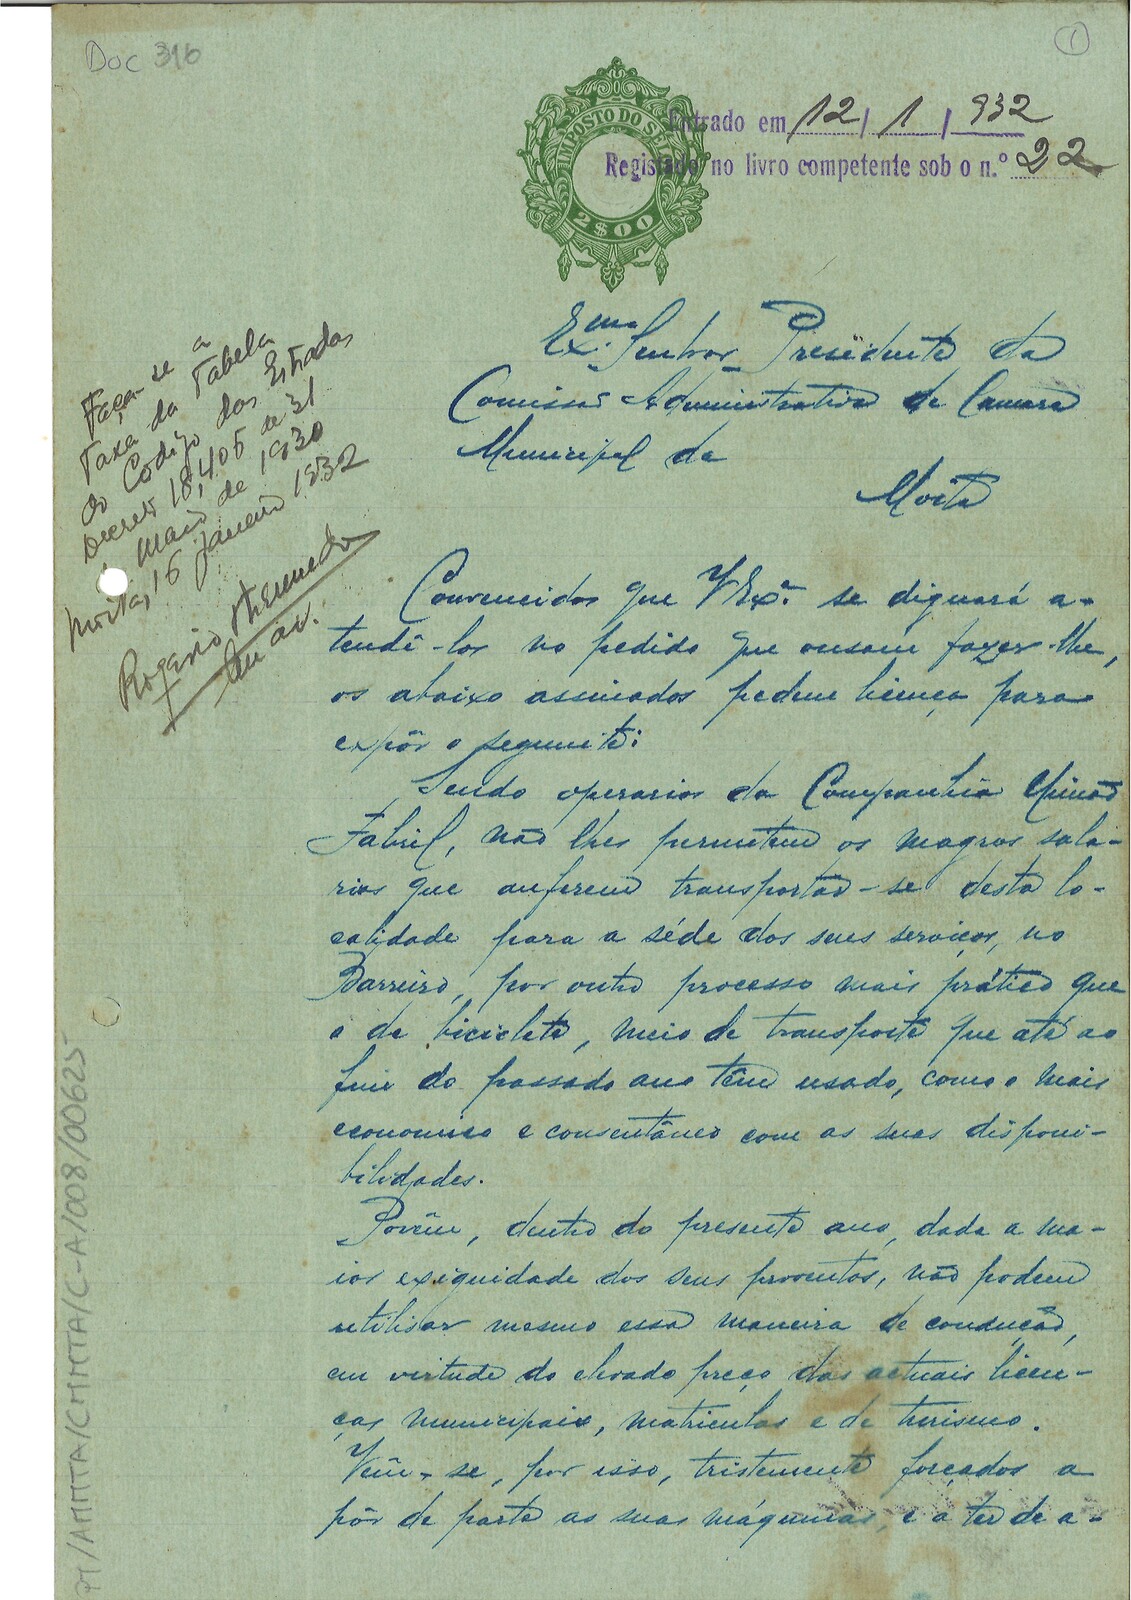 Doc 316
1
IMPOSTO DO S
2$00
Entrado em 12/1/932
Registado no livro competente sob o n.º 22
Exmo. Senhor Presidente da
Comissão Administrativa da Camara
Municipal da
Moita
Faça-se a
Taxa da Tabela
do Codigo das Estradas
Decreto 18,406 de 31
Maio de 1930
Moita, 16 Janeiro 1932
Rogerio
Convencidos que V. Exª. se dignará a-
tendê-los no pedido que ousam fazer-lhe,
os abaixo assinados pedem licença para
expôr o seguinte:
Sendo operarios da Companhia União
Fabril, não lhes permitem os magros sala-
rios que auferem transportar-se desta lo-
calidade para a séde dos seus serviços, no
Barreiro, por outro processo mais prático que
o de bicicleta, meio de transporte que até ao
fim do passado ano têm usado, como o mais
economico e consentâneo com as suas disponi-
bilidades.
Porêm, dentro do presente ano, dada a ma-
ior exiguidade dos seus proventos, não podem
utilisar mesmo essa maneira de condução,
em virtude do elevado preço das actuais licen-
ças municipais, matriculas e de turismo.
Vêm-se, por isso, tristemente forçados a
pôr de parte as suas máquinas, e a ter de a-
PT/AMMTA/CMMTA/C-A/008/00625